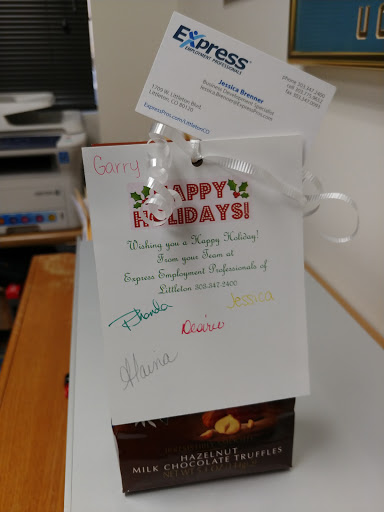 Express
EMPLOYMENT PROFESSIONALS
Jessica Brenner
Business Development Specialist
Jessica.Brenner@expresspros.com
1709 W. Littleton Blvd.
Littleton, CO 80120
ExpressPros.com/LittletonCO
Garry
HAPPY
HOLIDAYS!
Wishing you a Happy Holiday!
From your Team at
Express Employment Professionals of
Littleton 303-347-2400
Rhonda
Jessica
Desiree
Alaina
HAZELNUT
MILK CHOCOLATE TRUFFLES